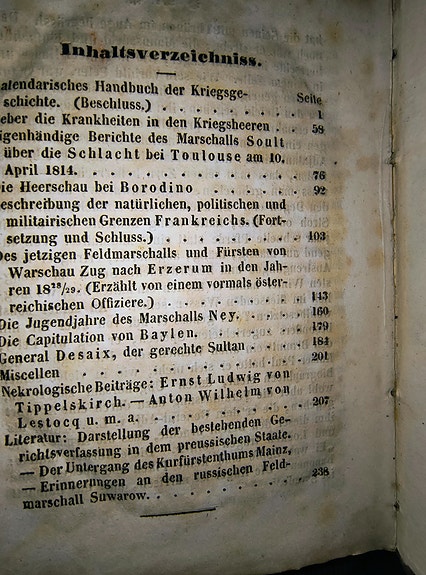 Inhaltsverzeichniss.
Seite
alendarisches Handbuch der Kriegsge-
schichte. (Beschluss,) . . . . . . . 1
eber die Krankheiten in den Kriegsheeren . . 59
igenhändige Berichte des Marschalls Soult
über die Schlacht bei Toulouse am 10.
April 1814. . . . . . . . . . . 76
ie Heerschau bei Borodino . . . . . . 92
eschreibung der natürlichen, politischen und
militairischen Grenzen Frankreichs. (Fort-
setzung und Schluss.) . . . . . . . 103
Des jetzigen Feldmarschalls und Fürsten von
Warschau Zug nach Erzerum in den Jah-
ren 18²⁸/₂₉. (Erzählt von einem vormals öster-
reichischen Offiziere.) . . . . . . . 143
Die Jugendjahre des Marschalls Ney. . . . 160
Die Capitulation von Baylen. . . . . . 179
General Desaix, der gerechte Sultan . . . 184
Miscellen . . . . . . . . . . 201
Nekrologische Beiträge: Ernst Ludwig von
Tippelskirch. — Anton Wilhelm von
Lestocq u. m. a. . . . . . . . . 207
Literatur: Darstellung der bestehenden Ge-
richtsverfassung in dem preussischen Staate.
— Der Untergang des Kurfürstenthums Mainz,
— Erinnerungen an den russischen Feld-
marschall Suwarow. . . . . . . . 238